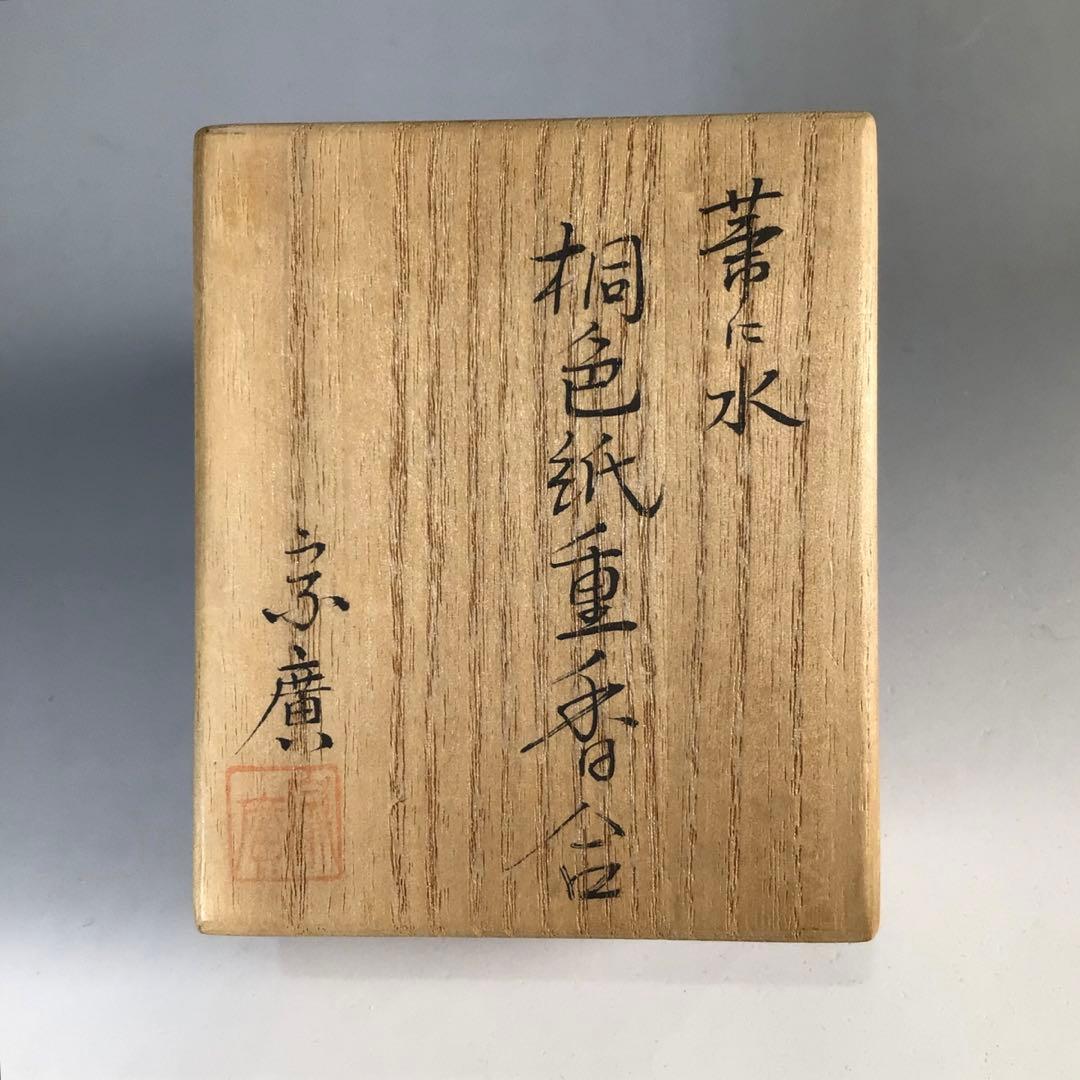 葦に水
桐色紙重香合
宗廣